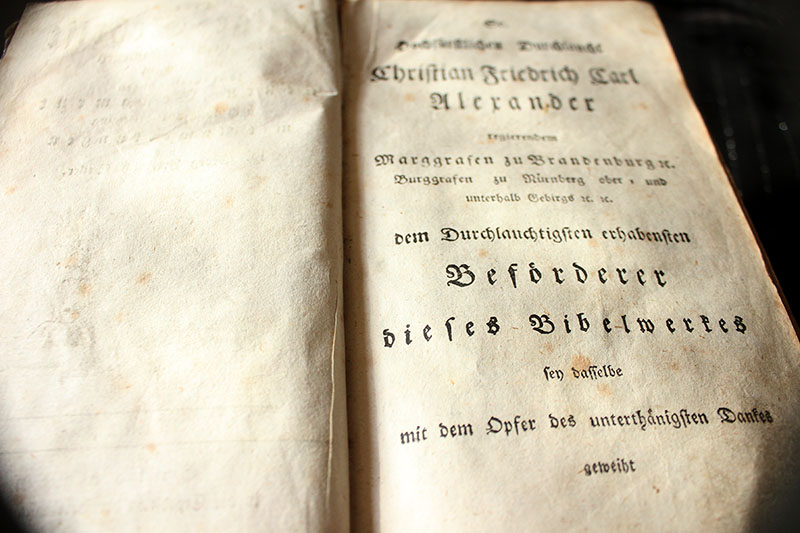 Sr.
Hochfürstlichen Durchlaucht
Christian Friedrich Carl
Alexander
regierendem
Marggrafen zu Brandenburg ꝛc.
Burggrafen zu Nürnberg ober, und
unterhalb Gebirgs ꝛc. ꝛc.
dem Durchlauchtigsten erhabensten
Beförderer
dieses Bibelwerkes
sey dasselbe
mit dem Opfer des unterthänigsten Dankes
geweiht